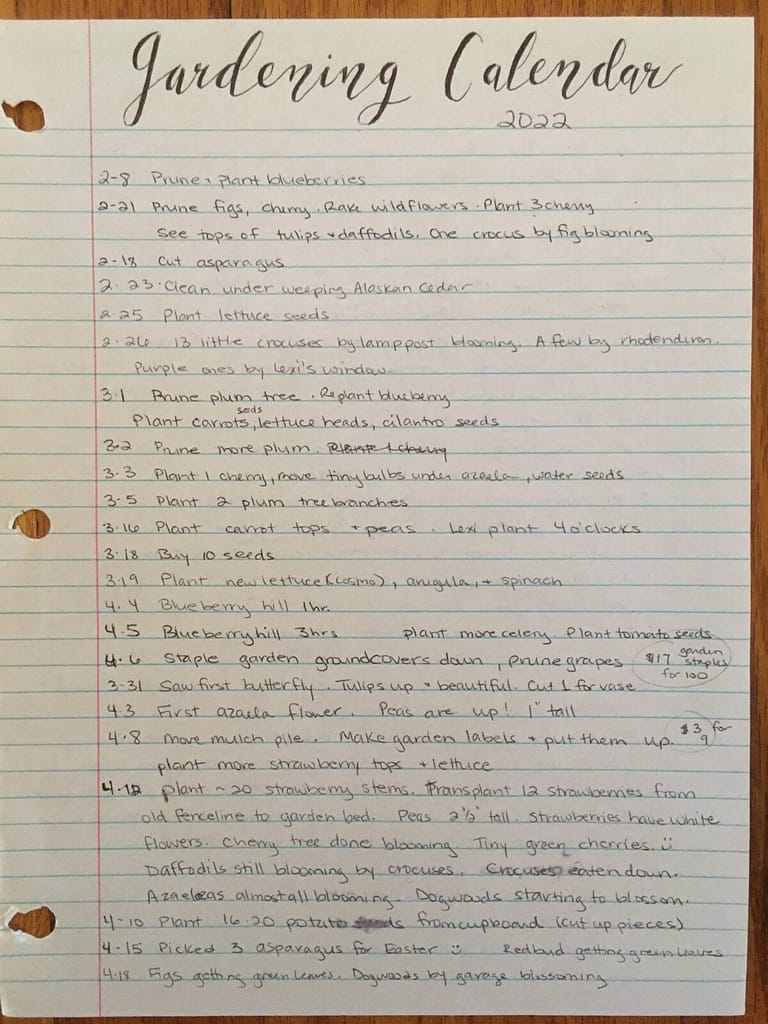 Gardening Calendar
2022
2-8 Prune + plant blueberries
2-21 Prune figs, cherry. Rake wildflowers. Plant 3 cherry
See tops of tulips + daffodils. One crocus by fig blooming
2-18 Cut asparagus
2.23 Clean under weeping Alaskan Cedar
2.25 Plant lettuce seeds
2.26 13 little crocuses by lamppost blooming. A few by rhodendron.
Purple ones by Lexi's window.
3.1 Prune plum tree. Replant blueberry
Plant carrots seeds, lettuce heads, cilantro seeds
3-2 Prune more plum. Plant 1 cherry
3-3 Plant 1 cherry, move tiny bulbs under azaela, water seeds
3-5 Plant 2 plum tree branches
3-16 Plant carrot tops + peas. Lexi plant 4 o'clocks
3-18 Buy 10 seeds
3-19 Plant new lettuce (cosmo), arugula, + spinach
4.4 Blueberry hill 1hr.
4.5 Blueberry hill 3hrs plant more celery. Plant tomato seeds
4.6 Staple garden groundcovers down, prune grapes $17 garden staples for 100
3-31 Saw first butterfly. Tulips up + beautiful. Cut 1 for vase
4.3 First azaela flower. Peas are up! 1" tall
4.8 Move mulch pile. Make garden labels + put them up. $3 for 9
plant more strawberry tops + lettuce
4-12 plant ~20 strawberry stems. Transplant 12 strawberries from
old fenceline to garden bed. Peas 2½" tall. Strawberries have white
flowers. Cherry tree done blooming. Tiny green cherries. :)
Daffodils still blooming by crocuses. Crocuses eaten down.
Azaeleas almost all blooming. Dogwoods starting to blossom.
4-10 Plant 16-20 potato from cupboard (cut up pieces)
4-15 Picked 3 asparagus for Easter :) Redbud getting green leaves
4-18 Figs getting green leaves. Dogwoods by garage blossoming